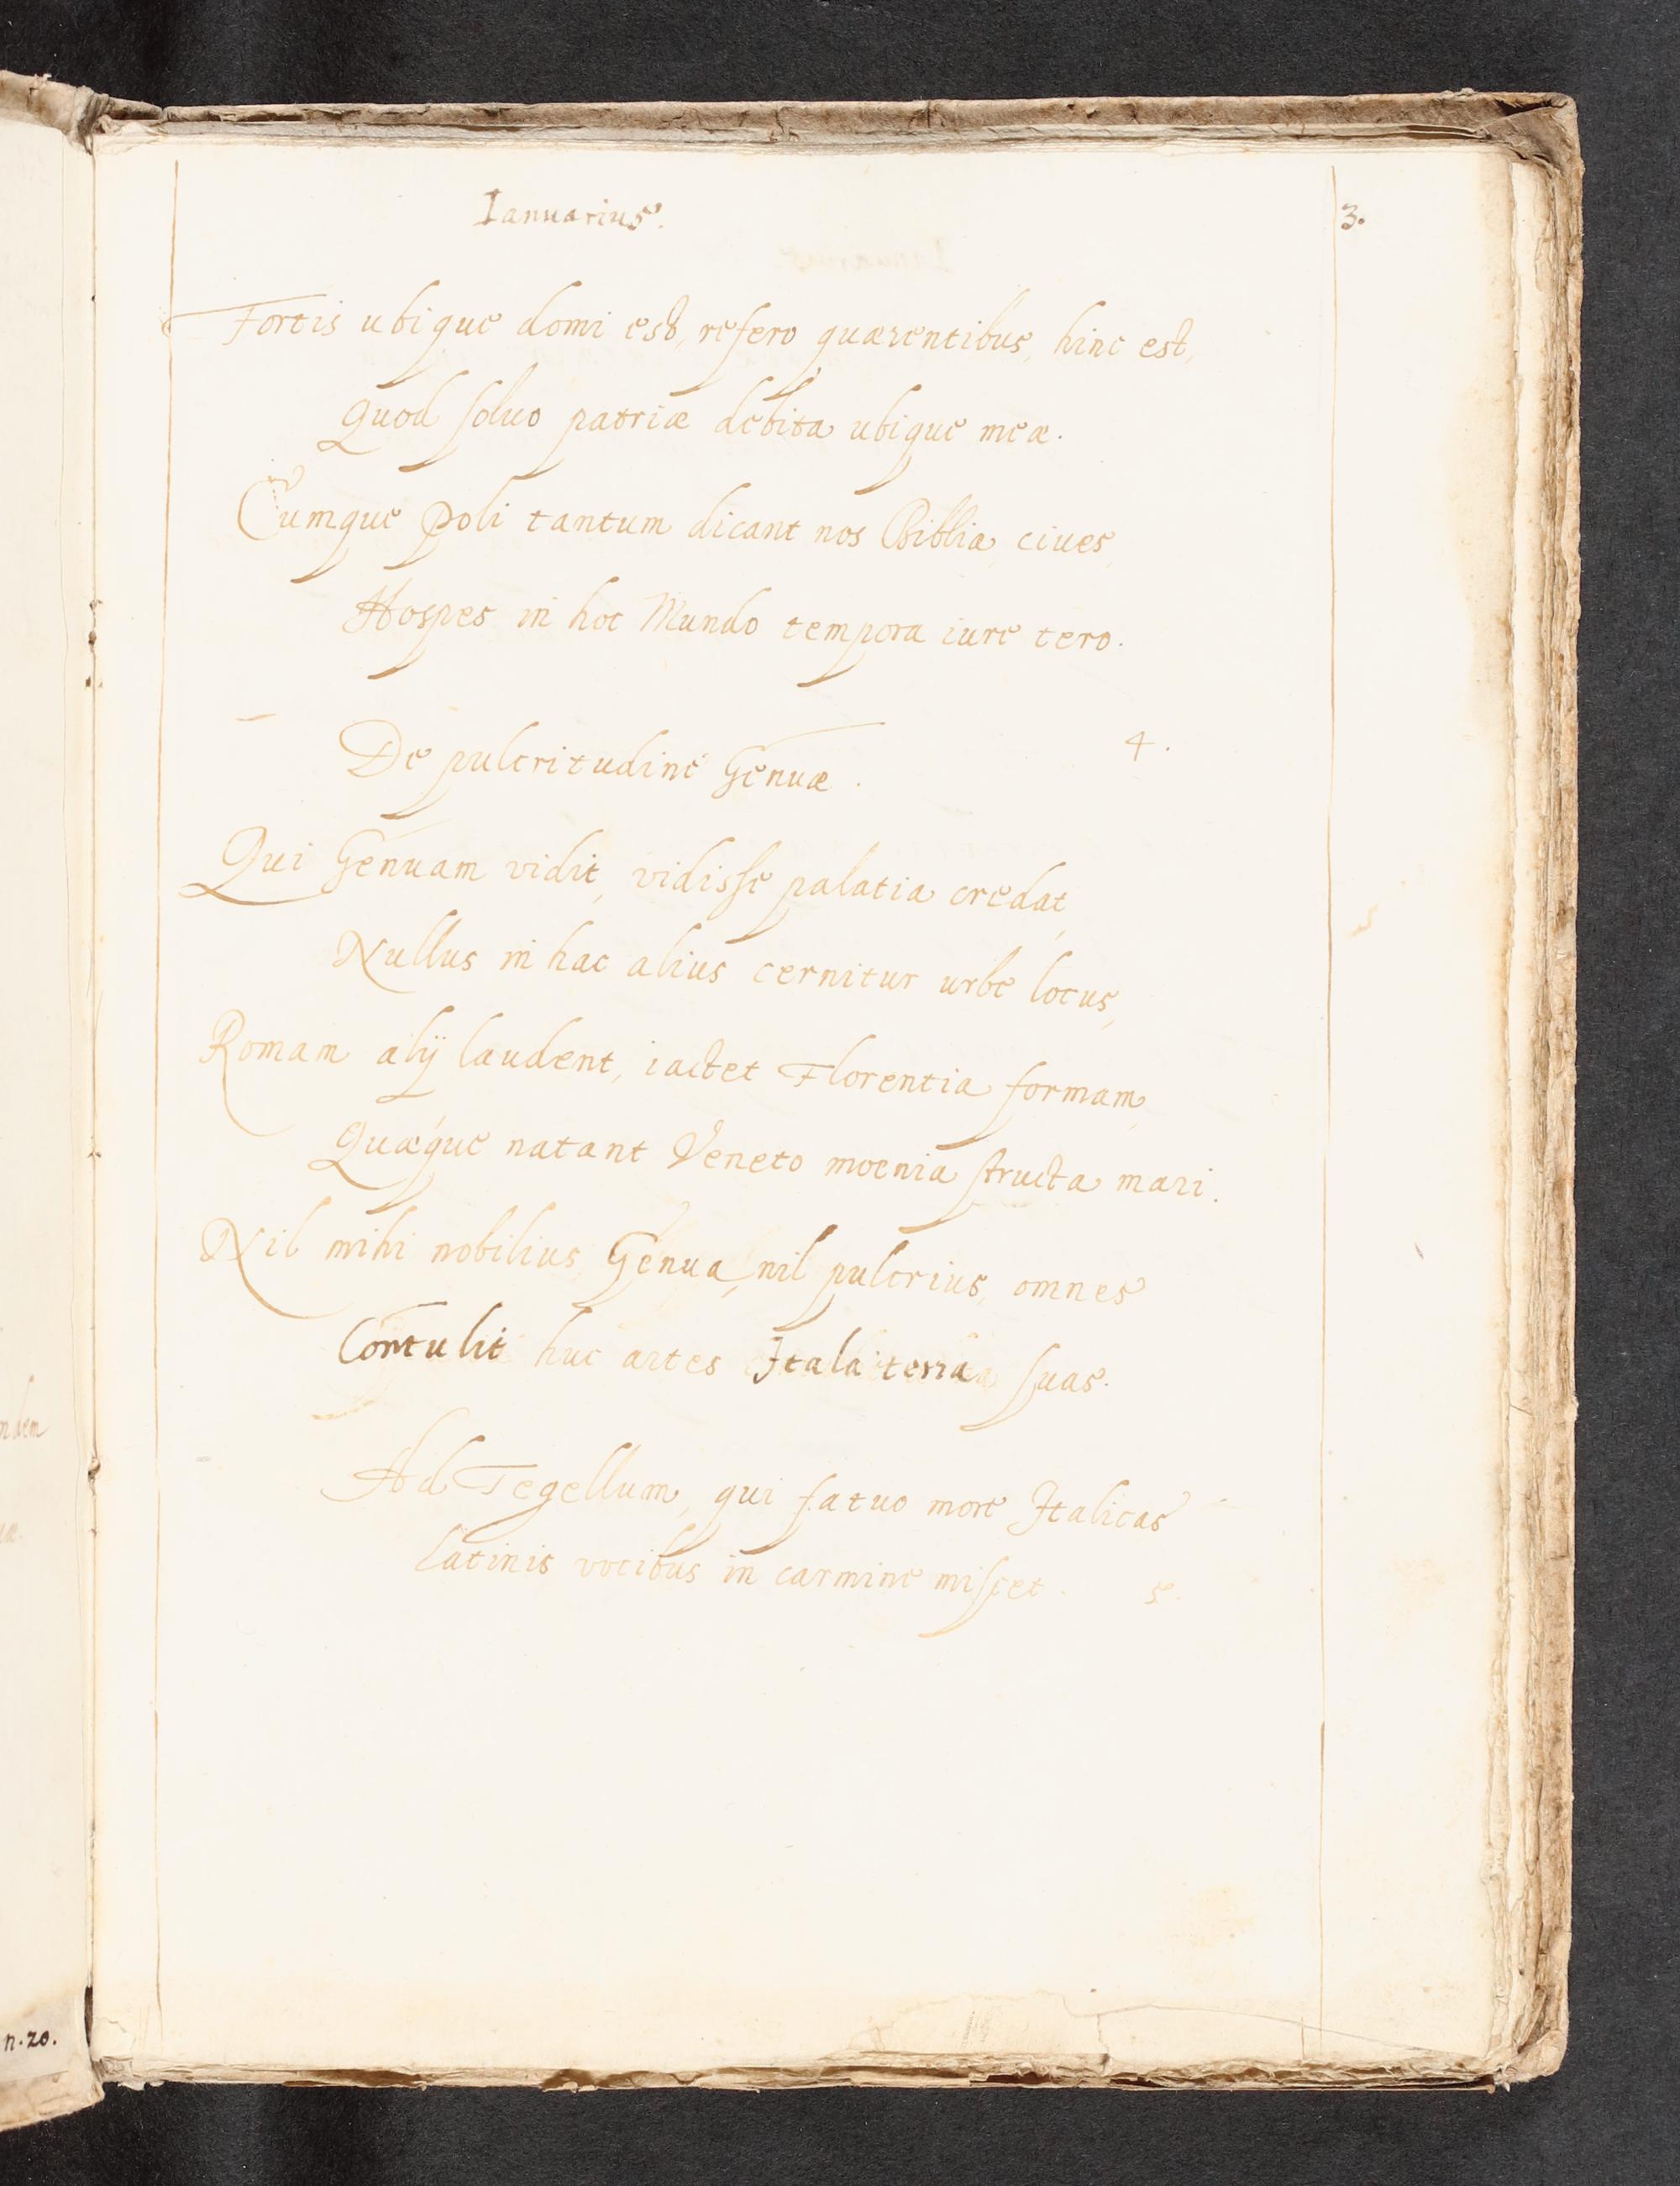 Ianuarius.
3.
Fortis ubique domi est, refero quærentibus, hinc est,
Quod soluo patriæ debita ubique meæ.
Cumque Poli tantum dicant nos Biblia, ciues,
Hospes in hoc Mundo tempora iure tero.
De pulcritudine Genuæ.
4.
Qui Genuam vidit, vidisse palatia credat,
Nullus in hac alius cernitur urbe locus,
Romam alij laudent, iactet Florentia formam,
Quæque natant Veneto moenia structa mari.
Nil mihi nobilius Genua, nil pulcrius, omnes
Contulit huc artes Itala terra suas.
Ad Tegellum, qui fatuo more Italicas
Latinis vocibus in carmine miscet.
5.
ndem
n.20.